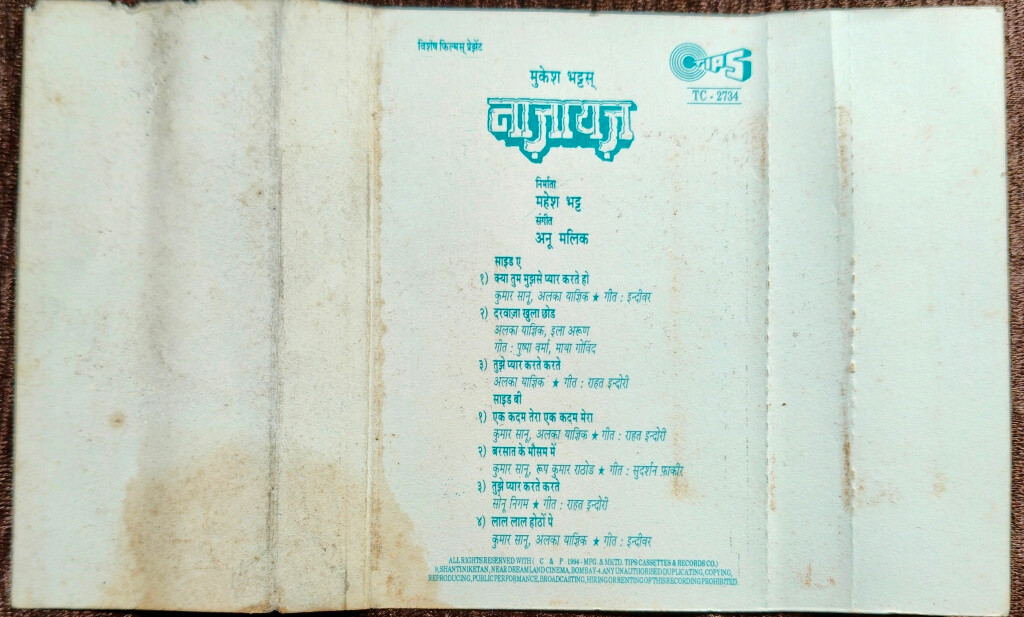 विशेष फिल्मस् प्रेझेंट
TIPS
TC - 2734
मुकेश भट्टस्
नाज़ायज़
निर्माता
महेश भट्ट
संगीत
अनू मलिक
साइड ए
१) क्या तुम मुझसे प्यार करते हो
कुमार सानू, अलका याज्ञिक ★ गीत : इन्दीवर
२) दरवाज़ा खुला छोड
अलका याज्ञिक, इला अरूण
गीत : पुष्पा वर्मा, माया गोविंद
३) तुझे प्यार करते करते
अलका याज्ञिक ★ गीत : राहत इन्दोरी
साइड बी
१) एक कदम तेरा एक कदम मेरा
कुमार सानू, अलका याज्ञिक ★ गीत : राहत इन्दोरी
२) बरसात के मौसम में
कुमार सानू, रूप कुमार राठोड ★ गीत : सुदर्शन फ़ाकीर
३) तुझे प्यार करते करते
सोनू निगम ★ गीत : राहत इन्दोरी
४) लाल लाल होठों पे
कुमार सानू, अलका याज्ञिक ★ गीत : इन्दीवर
ALL RIGHTS RESERVED WITH ( C & P 1994 - MFG. & MKTD. TIPS CASSETTES & RECORDS CO.)
9, SHANTINIKETAN, NEAR DREAMLAND CINEMA, BOMBAY-4. ANY UNAUTHORISED DUPLICATING, COPYING,
REPRODUCING, PUBLIC PERFORMANCE, BROADCASTING, HIRING OR RENTING OF THIS RECORDING PROHIBITED.